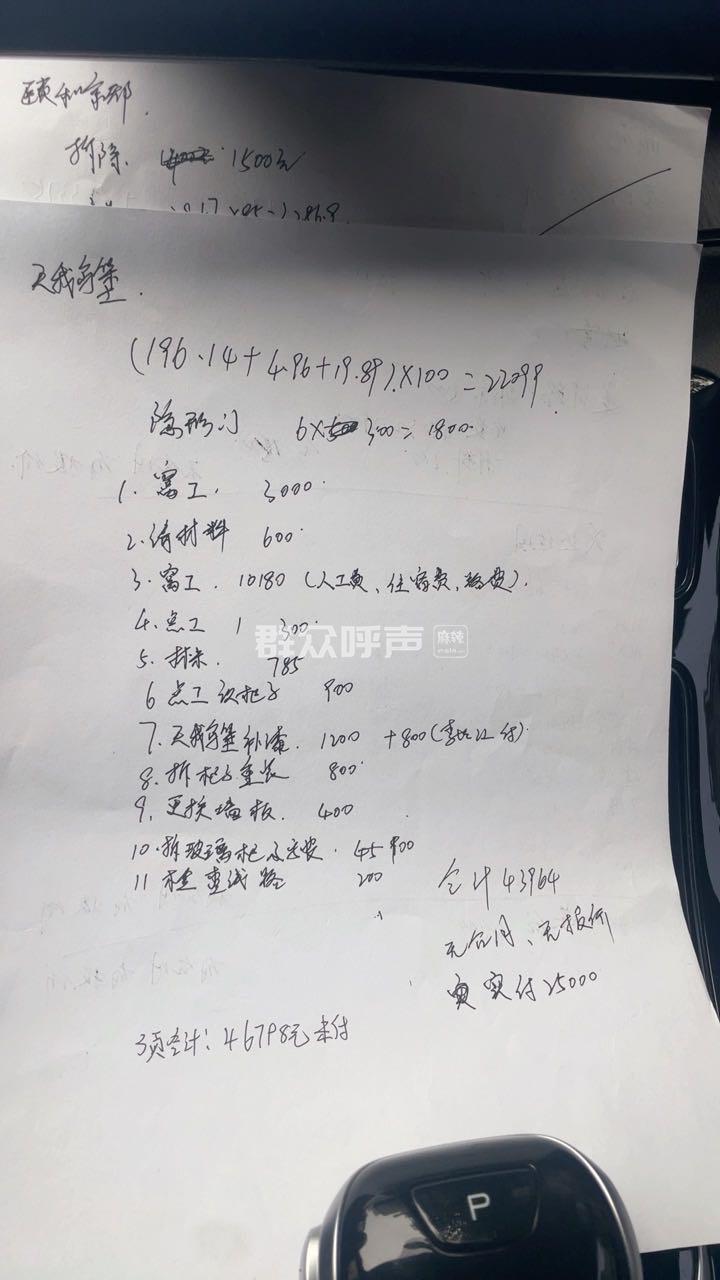 颐和京都.
拆除. 1500元
天鹅城堡.
(196.14+4.96+19.89)×100=22099
隐形门 6×300=1800.
1. 窝工. 3000.
2. 请材料 600.
3. 窝工. 10180 (人工费、住宿费、路费).
4. 点工 1 300.
群众呼声 麻辣
5. 785
6 点工 柜子 900
7. 天鹅城堡补漆. 1200 +800 付).
8. 拆柜子重装 800.
9. 更换墙板. 400
10. 拆玻璃柜及运费. 900
11 检查线路 200
合计43964
无合同、无报价
实付25000
3页合计: 46798元未付
P